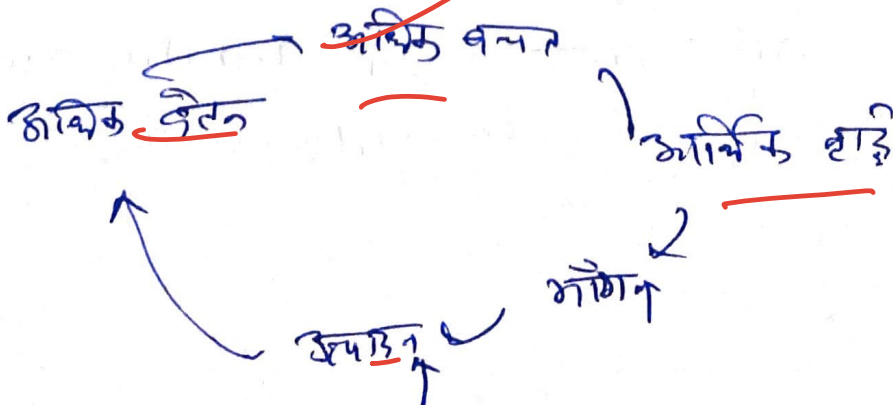 अधिक बचत
अधिक वेतन
आर्थिक वृद्धि
माँग ↑
उत्पादन ↑